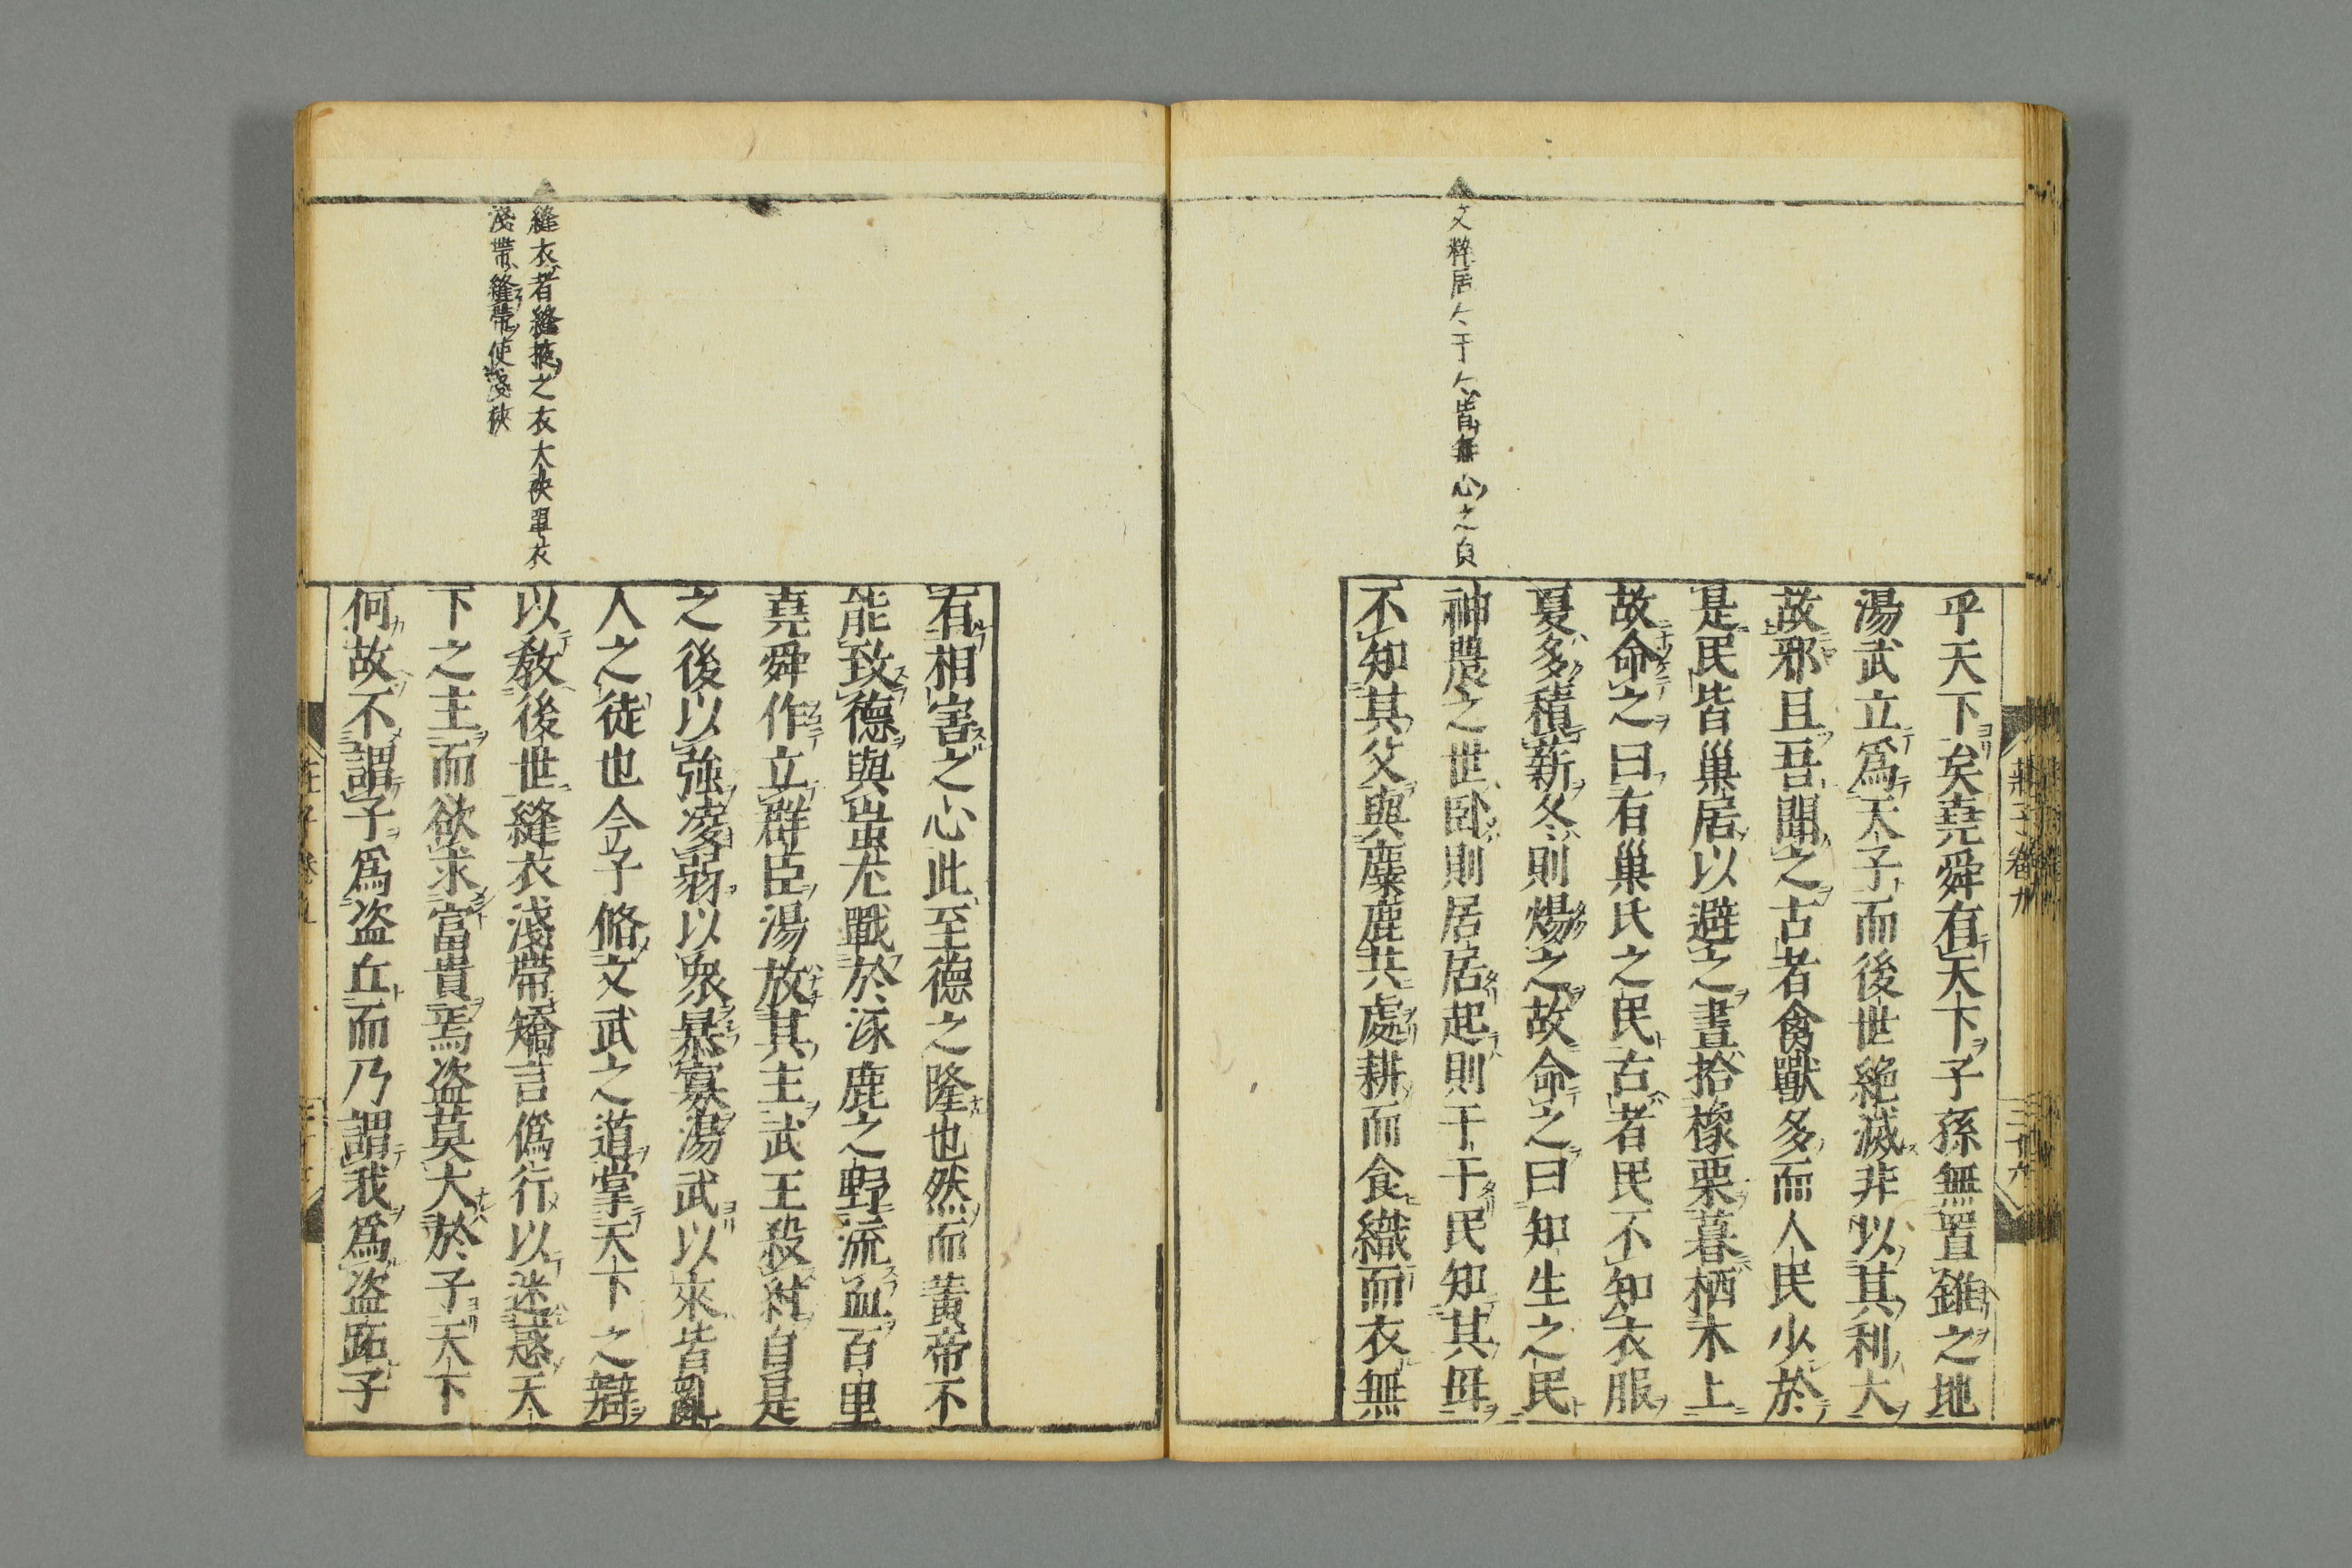 文粹居〻于〻皆無心之皃
乎天下矣堯舜有天下子孫無置錐之地
湯武立爲天子而後世絶滅非以其利大
故邪且吾聞之古者禽獸多而人民少於
是民皆巢居以避之晝拾橡栗暮栖木上
故命之曰有巢氏之民古者民不知衣服
夏多積薪冬則煬之故命之曰知生之民
神農之世卧則居居起則于于民知其母
不知其父與麋鹿共處耕而食織而衣無
縫衣者縫掖之衣大袂單衣
淺帶縫帶使淺狹
有相害之心此至德之隆也然而黃帝不
能致德與蚩尤戰於涿鹿之野流血百里
堯舜作立群臣湯放其主武王殺紂自是
之後以強凌弱以衆暴寡湯武以來皆亂
人之徒也今子脩文武之道掌天下之辯
以教後世縫衣淺帶矯言僞行以迷惑天
下之主而欲求富貴焉盗莫大於子天下
何故不謂子爲盗丘而乃謂我爲盗跖子